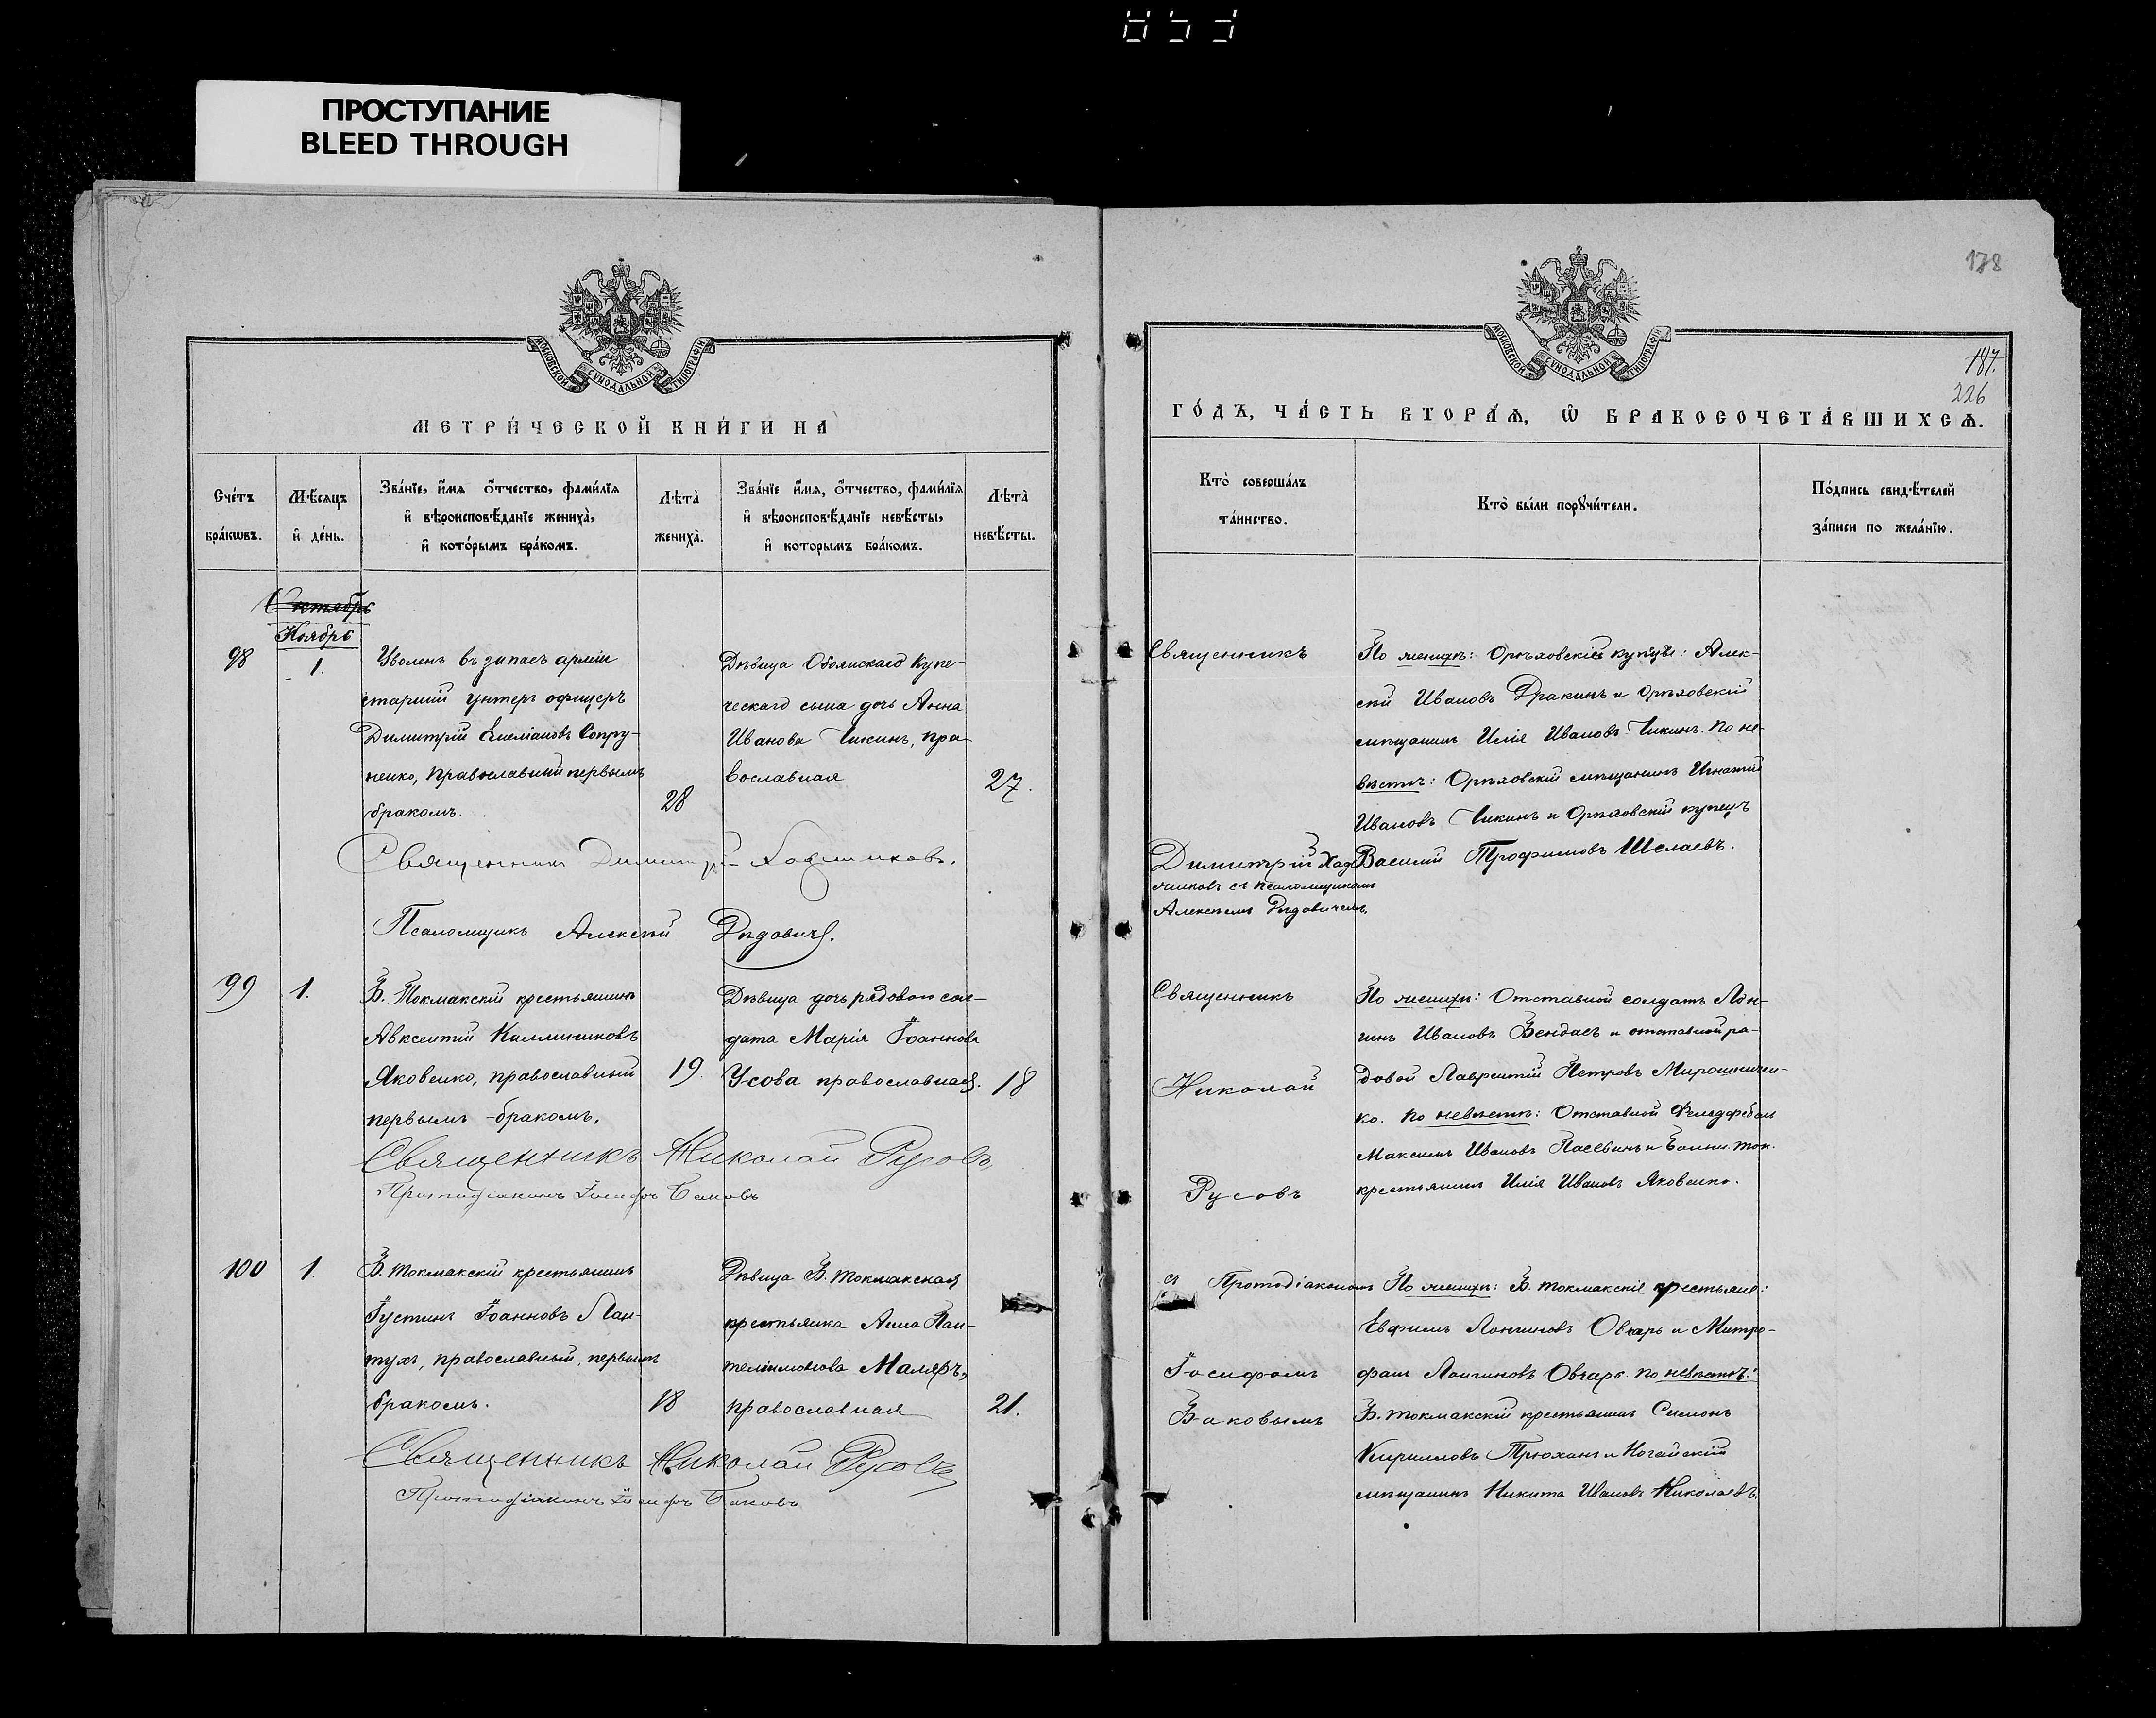 ПРОСТУПАНИЕ
BLEED THROUGH
МОСКОВСКОЙ СѴНОДАЛЬНОЙ ТИПОГРАФІИ
МЕТРИ́ЧЕСКОЙ КНИ́ГИ НА
Сче́тъ бра́кѡвъ.
Мѣ́сяцъ и҆ де́нь.
Зва́нїе, и҆́мя ѻ҆́тчество, фами́лїя
и҆ вѣроисповѣ́данїе жениха̀,
и҆ кото́рымъ бра́комъ.
Лѣта̀ жениха̀.
Зва́нїе и҆́мя, ѻ҆́тчество, фами́лїя
и҆ вѣроисповѣ́данїе невѣ́сты,
и҆ которымъ бра́комъ.
Лѣта̀ невѣ́сты.
Октябрь
Ноябрь
98
1.
Уволенъ въ запасъ арміи
старшій унтеръ офицеръ
Димитрій Емеліановъ Сопру-
ненко, православный первымъ
бракомъ.
28
Дѣвица Обоянскаго купе-
ческаго сына дочь Анна
Иванова Чикинъ, пра-
вославная
27.
Священникъ Димитрій
Псаломщикъ Алексѣй Дѣдовичъ.
99
1.
Б. Токмакскій крестьянинъ
Авксентій Каллиниковъ
Яковенко, православный
первымъ бракомъ.
19.
Дѣвица дочь рядового сол-
дата Марія Іоаннова
Усова православная.
18
Священникъ Николай Русовъ
Протодіаконъ Іосифъ Баковъ
100
1.
Б. Токмакскій крестьянинъ
Іустинъ Іоанновъ Пан-
тухъ, православный, первымъ
бракомъ.
18
Дѣвица Б. Токмакская
крестьянка Анна Пан-
телимонова Маляръ,
православная
21.
Священникъ Николай Русовъ
Протодіаконъ Іосифъ Баковъ
178
МОСКОВСКОЙ СѴНОДАЛЬНОЙ ТИПОГРАФІИ
187.
226
ГО́ДЪ, ЧА́СТЬ ВТОРА́Ѧ, Ѡ҆ БРАКОСОЧЕТА́ВШИХСѦ.
Кто̀ соверша́лъ
та́инство.
Кто̀ бы́ли порꙋчи́тели.
По́дпись свидѣ́телей
за́писи по жела́нїю.
Священникъ
Димитрій Хад
жиковъ съ псаломщикомъ
Алексѣемъ Дѣдовичемъ.
По женихѣ: Орѣховскій купецъ: Алек-
сѣй Ивановъ Дракинъ и Орѣховскій
мѣщанинъ Илія Ивановъ Чикинъ. По не-
вѣстѣ: Орѣховскій мѣщанинъ Игнатій
Ивановъ Чикинъ и Орѣховскій купецъ
Василій Трофимовъ Шелаевъ.
Священникъ
Николай
Русовъ
По женихѣ: Отставной солдатъ Лон-
гинъ Ивановъ Бендасъ и отставной ря-
довой Лаврентій Петровъ Мирошничен-
ко. По невѣстѣ: Отставной Фельдфебель
Максимъ Ивановъ и Больш. Ток.
крестьянинъ Илія Ивановъ Яковенко.
съ Протодіакономъ
Іосифомъ
Баковымъ
По женихѣ: Б. Токмакскіе крестьяне:
Евфимъ Лонгиновъ Овчарь и Митро-
фанъ Лонгиновъ Овчарь. По невѣстѣ:
Б. Токмакскій крестьянинъ Симонъ
Кирилловъ Трюханъ и Ногайскій
мѣщанинъ Никита Ивановъ Николаевъ.